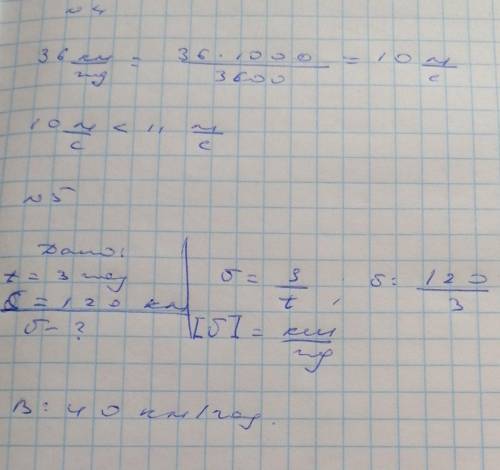 №4
36 км/год = 36·1000/3600 = 10 м/с
10 м/с < 11 м/с
№5
Дано:
t = 3 год
S = 120 км
υ - ?
υ = S/t ; υ = 120/3
[υ] = км/год
В: 40 км/год.